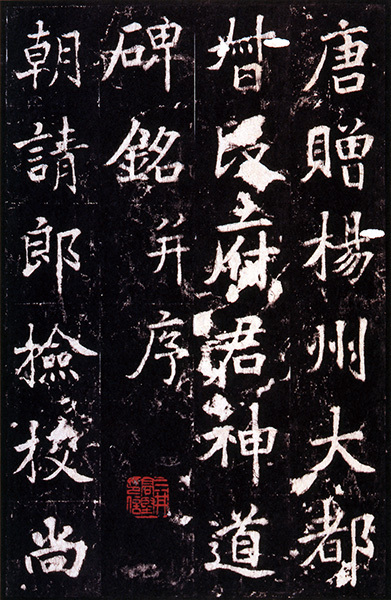 唐贈楊州大都
督段府君神道
碑銘并序
朝請郎撿挍尚